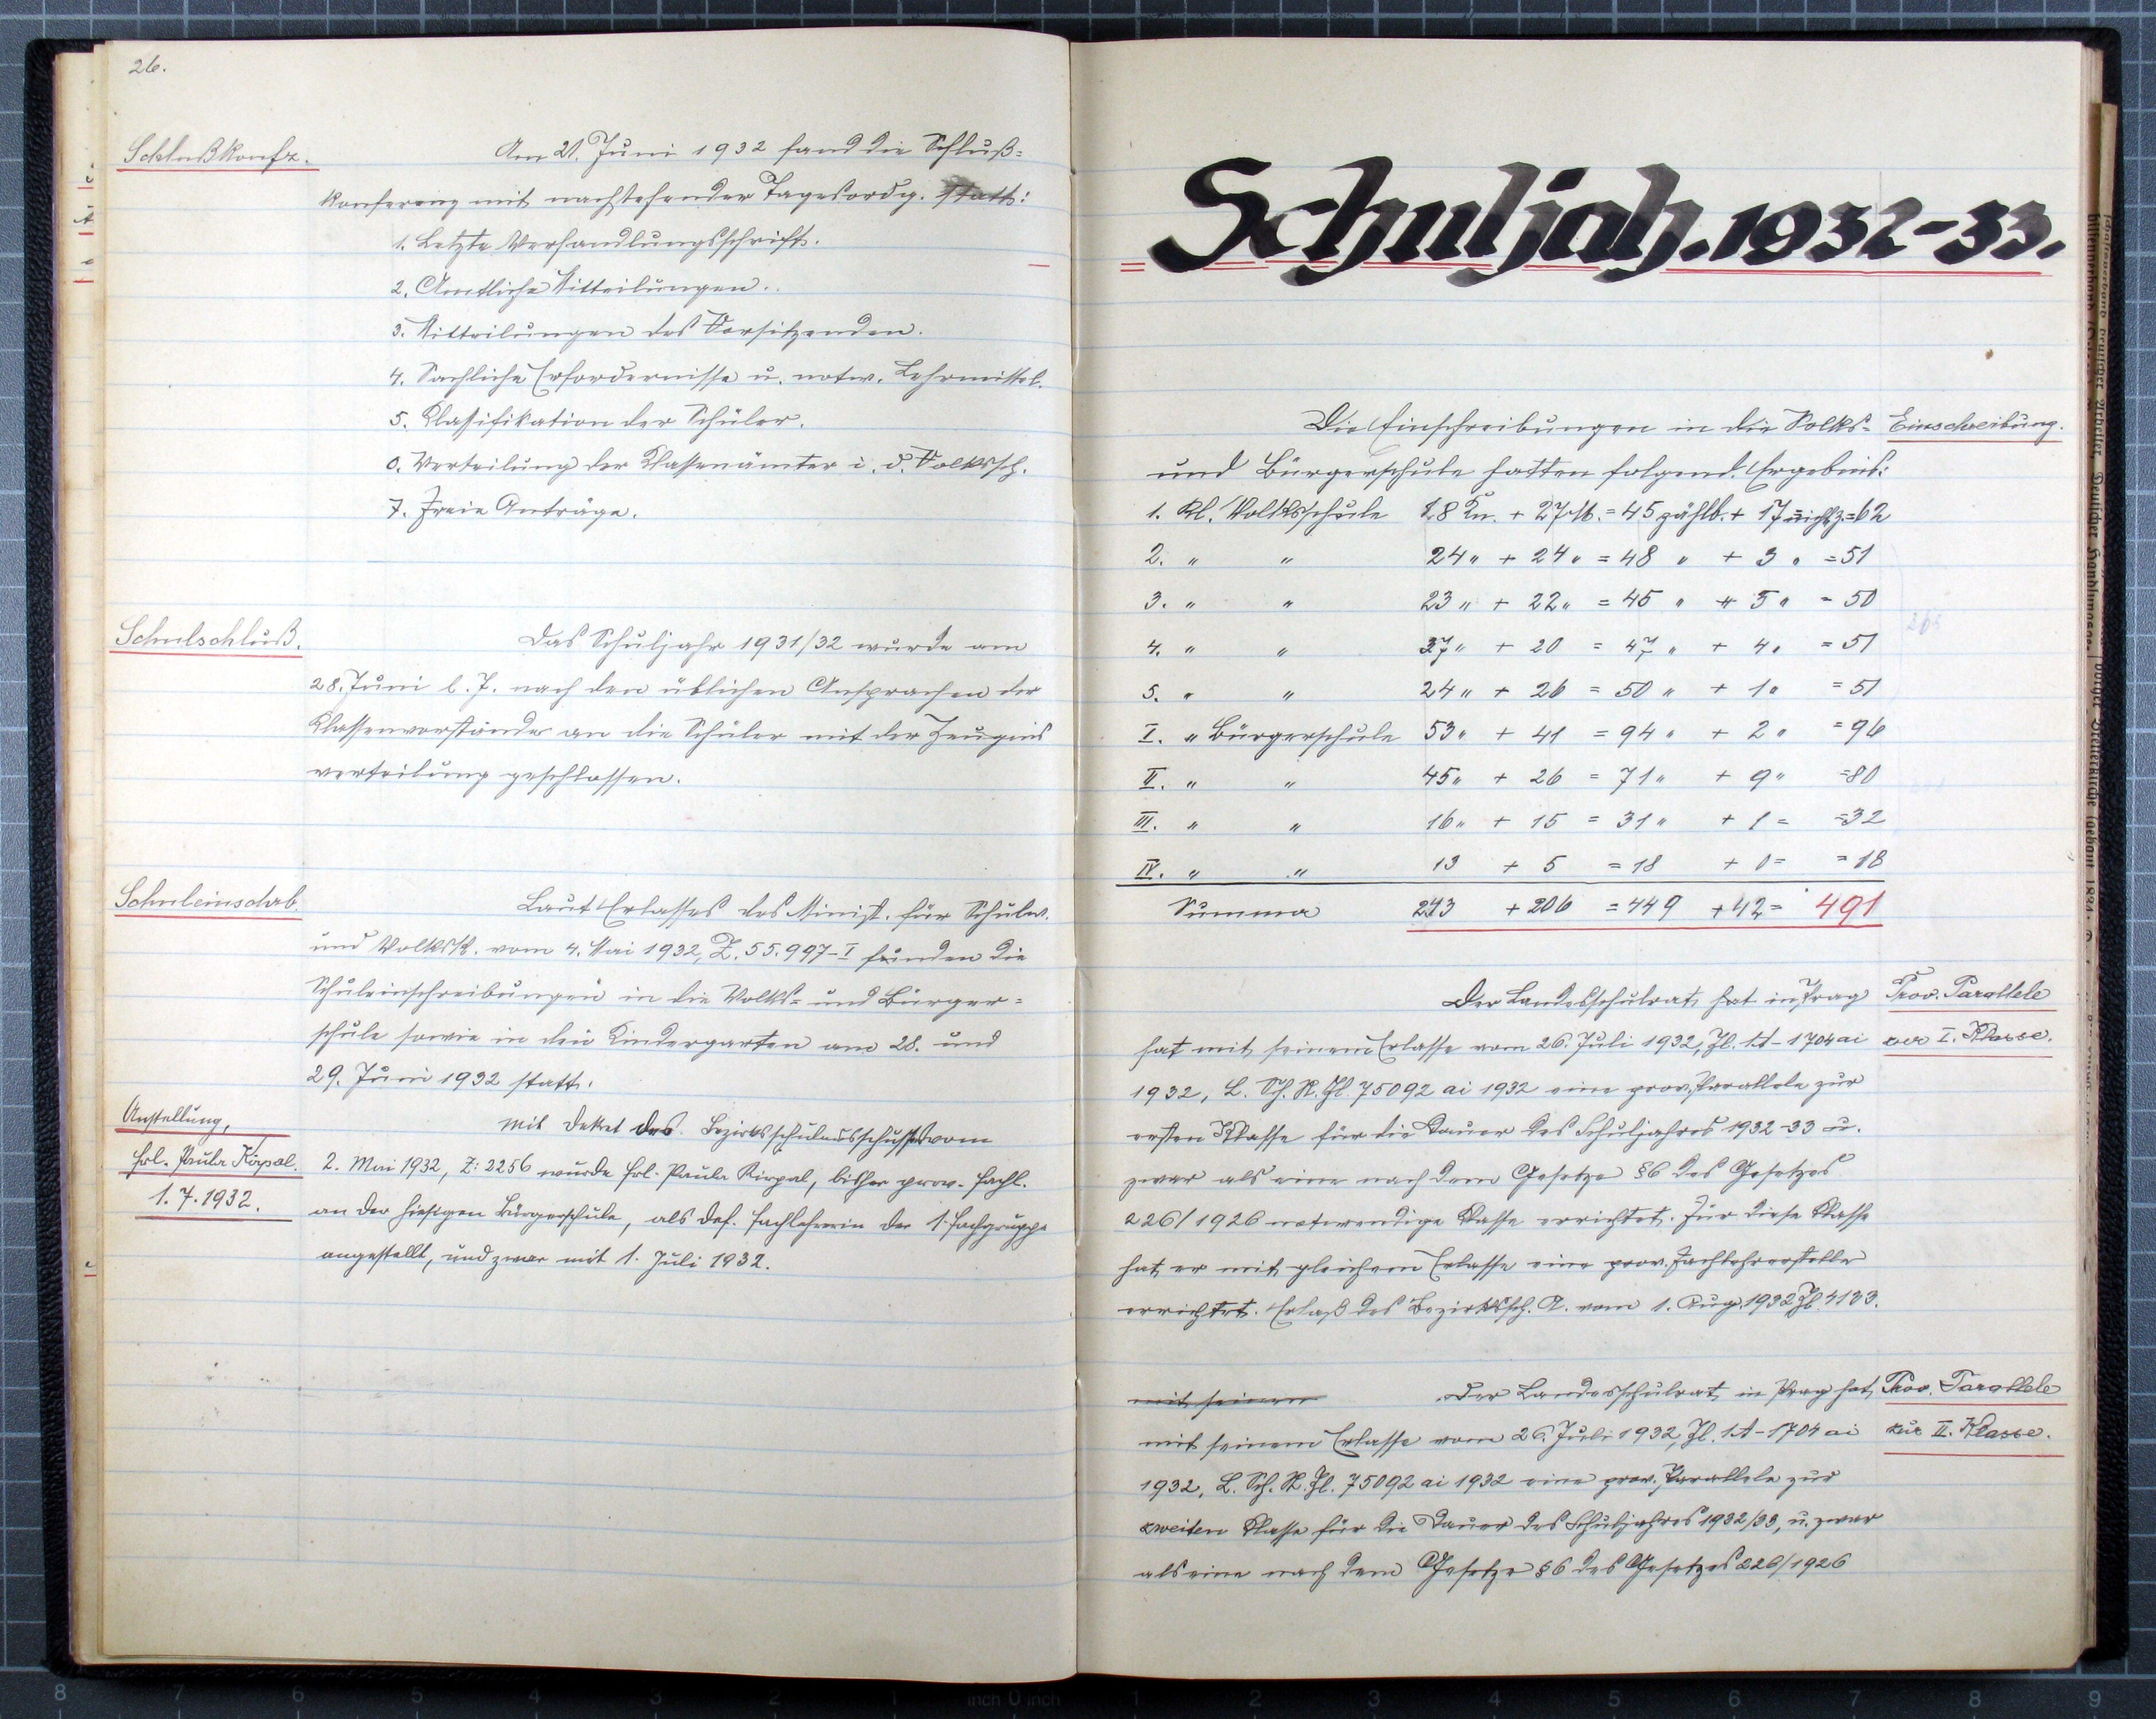 26.
Schlußkonfz.
Am 21. Juni 1932 fand die Schluß=
konferenz mit nachstehender Tagesordg. statt:
1. Letzte Verhandlungsschrift.
2. Amtliche Mitteilungen.
3. Mitteilungen des Vorsitzenden.
4. Sachliche Erfordernisse u. notw. Lehrmittel.
5. Klassifikation der Schüler.
6. Verteilung der Klassenämter i. d. Volkssch.
7. Freie Anträge.
Schulschluß.
Das Schuljahr 1931/32 wurde am
28. Juni l. J. nach den üblichen Ansprachen der
Klassenvorstände an die Schüler mit der Zeugnis
verteilung geschlossen.
Schuleinschrb.
Laut Erlasses des Minist. für Schulw.
und Volksk. vom 4. Mai 1932, Z. 55.997-I fanden die
Schuleinschreibungen in die Volks= und Bürger=
schule sowie in den Kindergarten am 28. und
29. Juni 1932 statt.
Anstellung,
Frl. Paula Kirpal.
1.7.1932.
Mit Dekret des Bezirksschulausschusses vom
2. Mai 1932, Z: 2256 wurde Frl. Paula Kirpal, bisher prov. Fachl.
an der hiesigen Bürgerschule, als def. Fachlehrerin der 1. Fachgruppe
angestellt, und zwar mit 1. Juli 1932.
Schuljah. 1932-33.
Einschreibung.
Die Einschreibungen in die Volks=
und Bürgerschule hatten folgend. Ergebnis:
1. Kl. Volksschule 18 Kn. + 27 M. = 45 zählb. + 17 nichtz. = 62
2. " " 24 " + 24 " = 48 " + 3 " = 51
3. " " 23 " + 22 " = 45 " + 5 " = 50
4. " " 27 " + 20 = 47 " + 4 " = 51
5. " " 24 " + 26 = 50 " + 1 " = 51
I. " Bürgerschule 53 " + 41 = 94 " + 2 " = 96
II. " " 45 " + 26 = 71 " + 9 " = 80
III. " " 16 " + 15 = 31 " + 1 = = 32
IV. " " 13 + 5 = 18 + 0 = = 18
Summa 243 + 206 = 449 + 42 = 491
Prov. Parallele
zur I. Klasse.
Der Landesschulrat hat in Prag
hat mit seinem Erlasse vom 26. Juli 1932, Zl. 1A-1704 ai
1932, L. Sch. R. Zl. 75092 ai 1932 eine prov. Parallele zur
ersten Klasse für die Dauer des Schuljahres 1932-33 u.
zwar als eine nach dem Gesetze §6 des Gesetzes
226/1926 notwendige Klasse errichtet. Für diese Klasse
hat er mit gleichem Erlasse eine prov. Fachlehrerstelle
errichtet. Erlaß des Bezirkssch. A. vom 1. Aug. 1932 Zl. 4133.
Prov. Parallele
zur II. Klasse.
mit seinem Der Landesschulrat in Prag hat
mit seinem Erlasse vom 26. Juli 1932, Zl. 1A-1704 ai
1932, L. Sch. R. Zl. 75092 ai 1932 eine prov. Parallele zur
zweiten Klasse für die Dauer des Schuljahres 1932/33, u. zwar
als eine nach dem Gesetze §6 des Gesetzes 226/1926
8 7 6 5 4 3 2 1 inch 0 inch 1 2 3 4 5 6 7 8 9